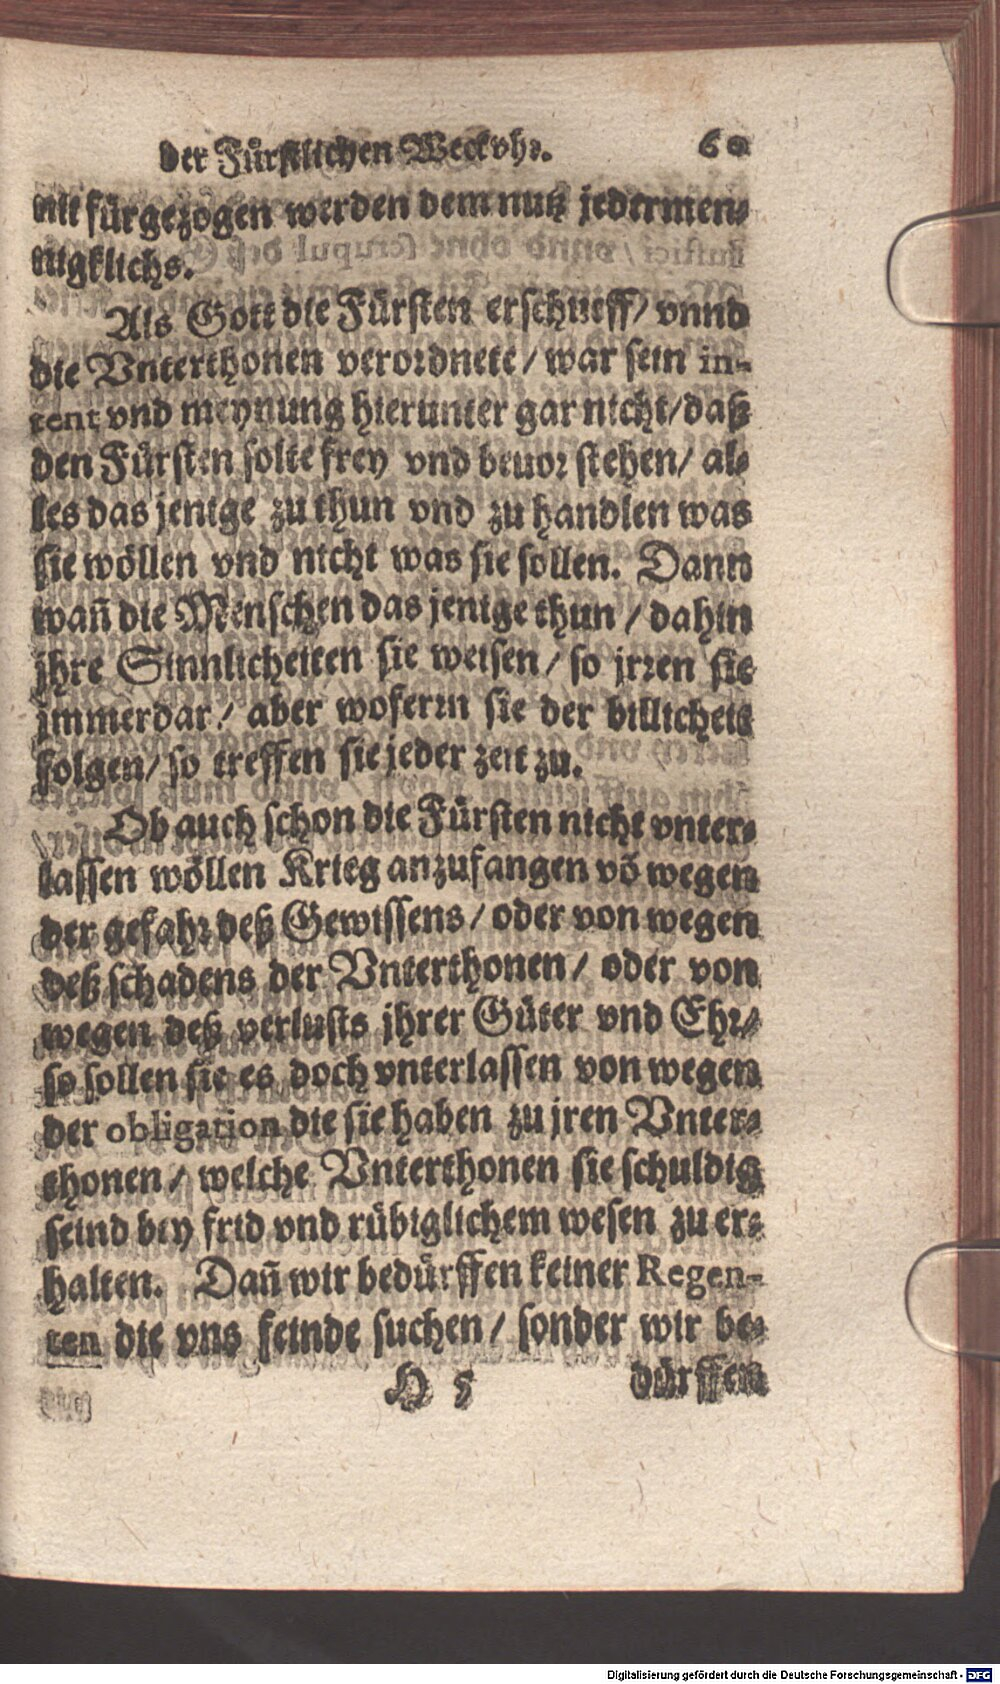 der Fürstlichen Weckvhr. 60
nit fürgezogen werden dem nutz jedermen-
nigklichs.
Als Gott die Fürsten erschueff/ vnnd
die Vnterthonen verordnete/ war sein in-
tent vnd meynung hierunter gar nicht/ daß
den Fürsten solte frey vnd beuor stehen/ al-
les das jenige zu thun vnd zu handlen was
sie wöllen vnd nicht was sie sollen. Dann
wañ die Menschen das jenige thun/ dahin
jhre Sinnlicheiten sie weisen/ so jrren sie
jmmerdar/ aber wofern sie der billicheit
folgen/ so treffen sie jeder zeit zu.
Ob auch schon die Fürsten nicht vnter-
lassen wöllen Krieg anzufangen võ wegen
der gefahr deß Gewissens/ oder von wegen
deß schadens der Vnterthonen/ oder von
wegen deß verlusts jhrer Güter vnd Ehr/
so sollen sie es doch vnterlassen von wegen
der obligation die sie haben zu jren Vnter-
thonen/ welche Vnterthonen sie schuldig
seind bey frid vnd rübiglichem wesen zu er-
halten. Dañ wir bedürffen keiner Regen-
ten die vns feinde suchen/ sonder wir be-
H 5 dürffen
Digitalisierung gefördert durch die Deutsche Forschungsgemeinschaft - DFG